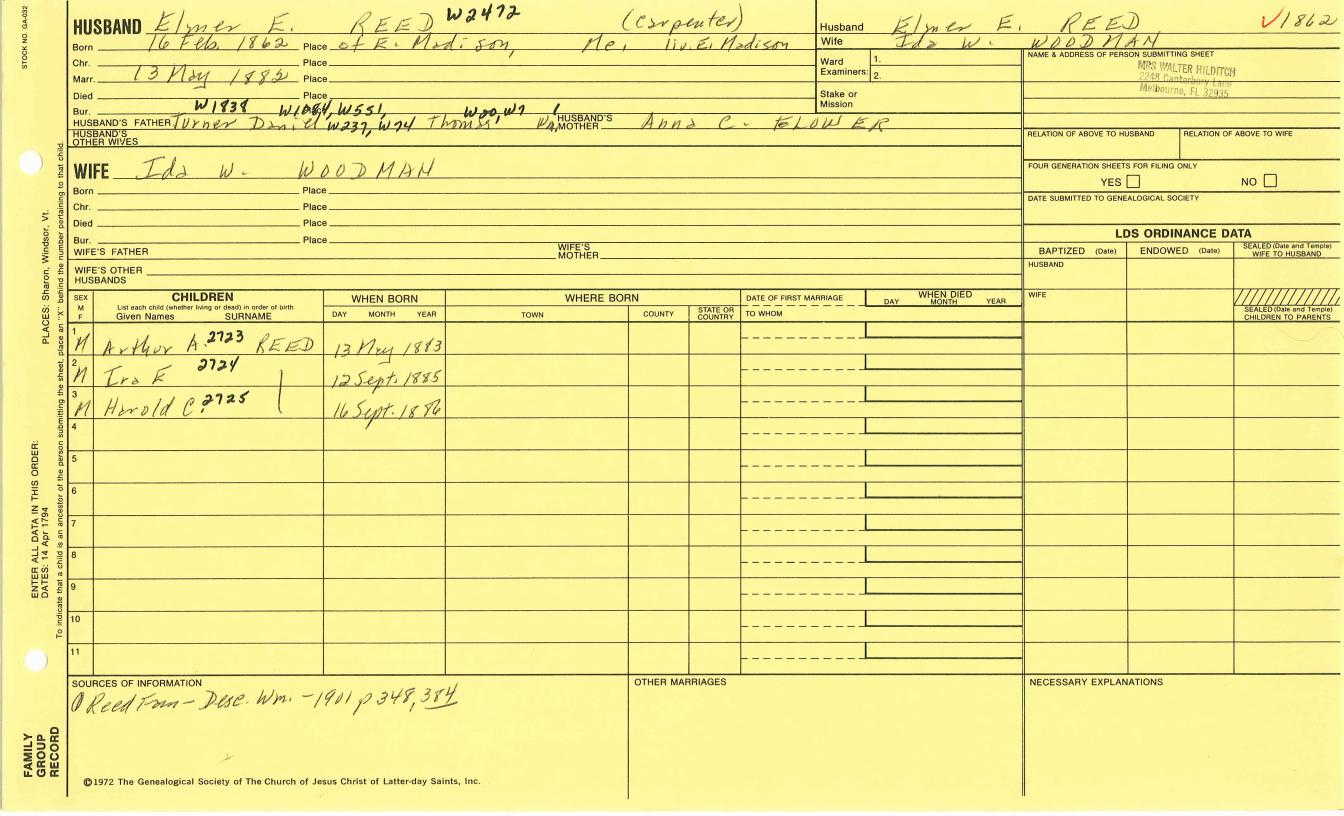 STOCK NO. GA-032
HUSBAND Elmer E. REED W2472 (carpenter)
Born 16 Feb. 1862 Place of E. Madison, Me, liv. E. Madison
Chr. Place
Marr. 13 May 1882 Place
Died Place
Bur. W1838 W551, W00, W7
HUSBAND'S FATHER Turner Daniel W237, W74 Thomas HUSBAND'S MOTHER Anna C. FLOWER
HUSBAND'S OTHER WIVES
WIFE Ida W. WOODMAN
Born Place
Chr. Place
Died Place
Bur. Place
WIFE'S FATHER WIFE'S MOTHER
WIFE'S OTHER HUSBANDS
Husband Elmer E. REED ✓1862
Wife Ida W. WOODMAN
Ward Examiners: 1.
2.
Stake or Mission
NAME & ADDRESS OF PERSON SUBMITTING SHEET
MRS WALTER HILDITCH
2248 Canterbury Lane
Melbourne, FL 32935
RELATION OF ABOVE TO HUSBAND RELATION OF ABOVE TO WIFE
FOUR GENERATION SHEETS FOR FILING ONLY
YES NO
DATE SUBMITTED TO GENEALOGICAL SOCIETY
LDS ORDINANCE DATA
BAPTIZED (Date) ENDOWED (Date) SEALED (Date and Temple) WIFE TO HUSBAND
HUSBAND
WIFE
SEALED (Date and Temple) CHILDREN TO PARENTS
SEX M F CHILDREN List each child (whether living or dead) in order of birth Given Names SURNAME
WHEN BORN DAY MONTH YEAR
WHERE BORN TOWN COUNTY STATE OR COUNTRY
DATE OF FIRST MARRIAGE TO WHOM
WHEN DIED DAY MONTH YEAR
1 M Arthur A. 2723 REED 13 May 1883
2 M Ira E 2724 12 Sept. 1885
3 M Harold C. 2725 16 Sept. 1886
4
5
6
7
8
9
10
11
SOURCES OF INFORMATION
Reed Fam - Desc. Wm. - 1901 p 348, 384
OTHER MARRIAGES
NECESSARY EXPLANATIONS
©1972 The Genealogical Society of The Church of Jesus Christ of Latter-day Saints, Inc.
FAMILY GROUP RECORD
ENTER ALL DATA IN THIS ORDER:
DATES: 14 Apr 1794
PLACES: Sharon, Windsor, Vt.
To indicate that a child is an ancestor of the person submitting the sheet, place an "X" behind the number pertaining to that child.